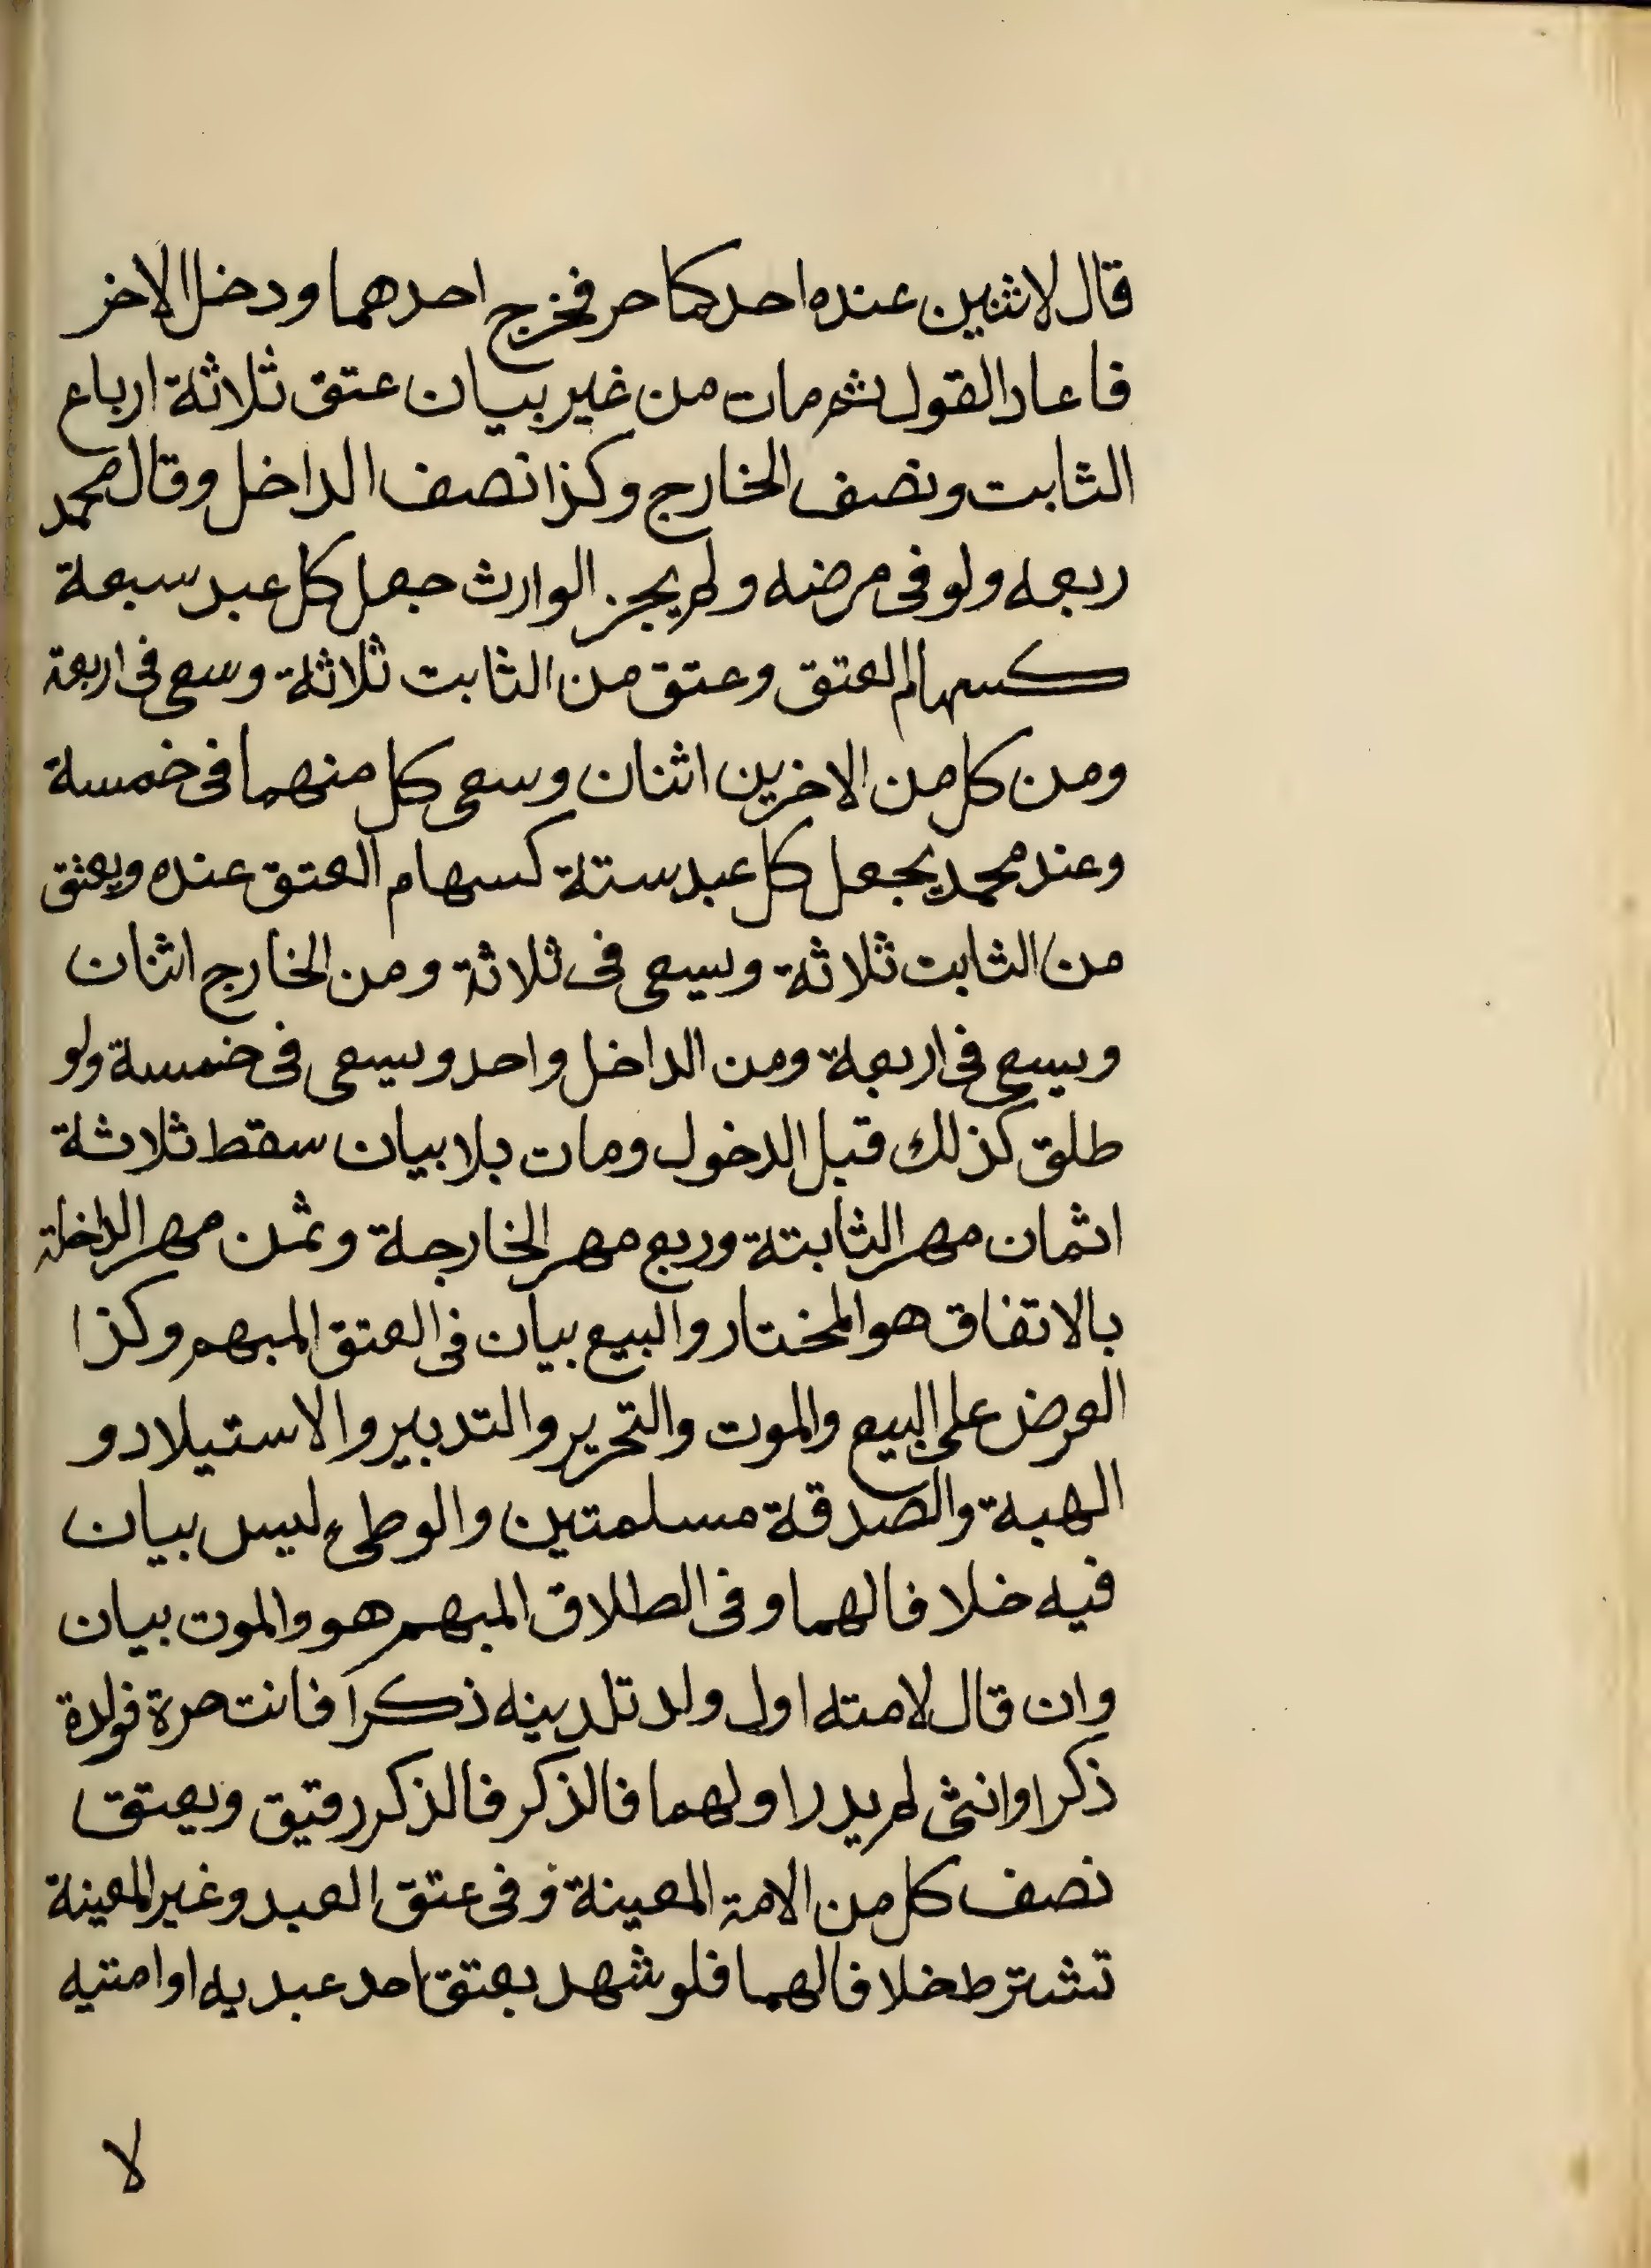 قال لاثنين عنده احدكما حر فخرج احدهما ودخل الاخر
فاعاد القول ثم مات من غير بيان عتق ثلاثة ارباع
الثابت ونصف الخارج وكذا نصف الداخل وقال محمد
ربعه ولو فى مرضه ولم يجز الوارث جعل كل عبد سبعة
كسهام العتق وعتق من الثابت ثلاثة وسعى فى اربعة
ومن كل من الاخرين اثنان وسعى كل منهما فى خمسة
وعند محمد يجعل كل عبد ستة كسهام العتق عنده ويعتق
من الثابت ثلاثة ويسعى فى ثلاثة ومن الخارج اثنان
ويسعى فى اربعة ومن الداخل واحد ويسعى فى خمسة ولو
طلق كذلك قبل الدخول ومات بلا بيان سقط ثلاثة
اثمان مهر الثابتة وربع مهر الخارجة وثمن مهر الداخلة
بالاتفاق هو المختار والبيع بيان فى العتق المبهم وكذا
العرض على البيع والموت والتحرير والتدبير والاستيلاد و
الهبة والصدقة مسلمتين والوطىء ليس بيان
فيه خلافا لهما وفى الطلاق المبهم هو والموت بيان
وان قال لامته اول ولد تلدينه ذكرا فانت حرة فولدة
ذكرا وانثى لم يدر اولهما فالذكر فالذكر رقيق ويعتق
نصف كل من الامة المعينة وفى عتق العبد وغير المعينة
تشترط خلافا لهما فلو شهد بعتق احد عبديه او امتيه
لا